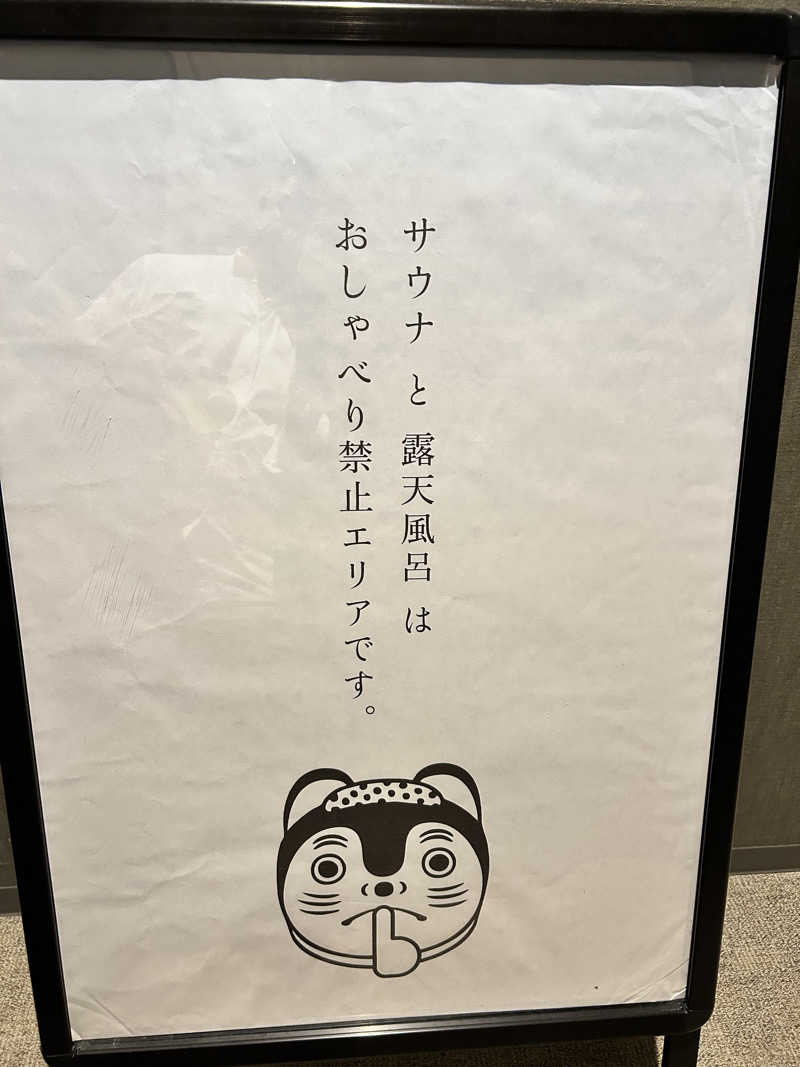 サウナ と 露天風呂 は
おしゃべり禁止エリアです。